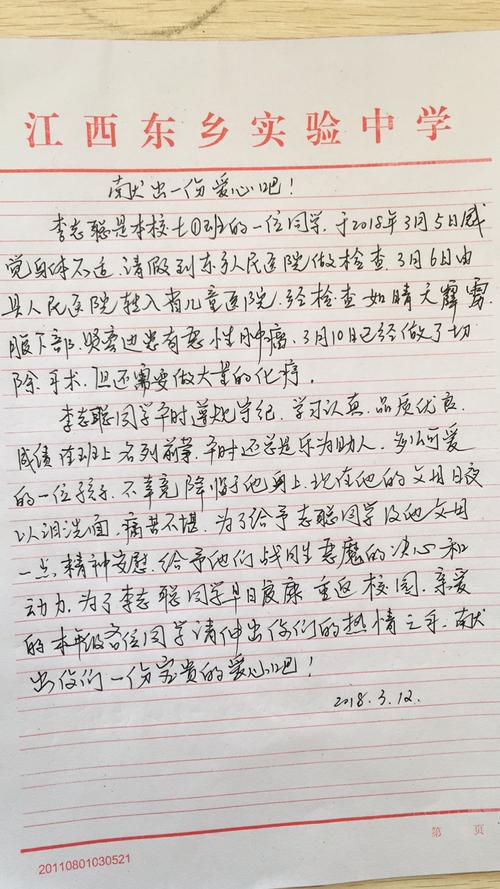 江西东乡实验中学
献出一份爱心吧！
李志聪是本校七(1)班的一位同学，于2018年3月5日感
觉身体不适，请假到东乡人民医院做检查，3月6日由
县人民医院转入省儿童医院，经检查如晴天霹雳，
腹下部、肾旁边患有恶性肿瘤，3月10日已经做了切
除手术，但还需要做大量的化疗。
李志聪同学平时遵规守纪，学习认真，品质优良，
成绩在班上名列前茅，平时还总是乐为助人，多么可爱
的一位孩子，不幸竟降临于他身上，现在他的父母日夜
以泪洗面，痛苦不堪，为了给予志聪同学及他父母
一点精神安慰，给予他们战胜恶魔的决心和
动力，为了李志聪同学早日康复，重返校园，亲爱
的本年级各位同学请伸出你们的热情之手，献
出你们一份宝贵的爱心吧！
2018.3.12.
第 页
20110801030521